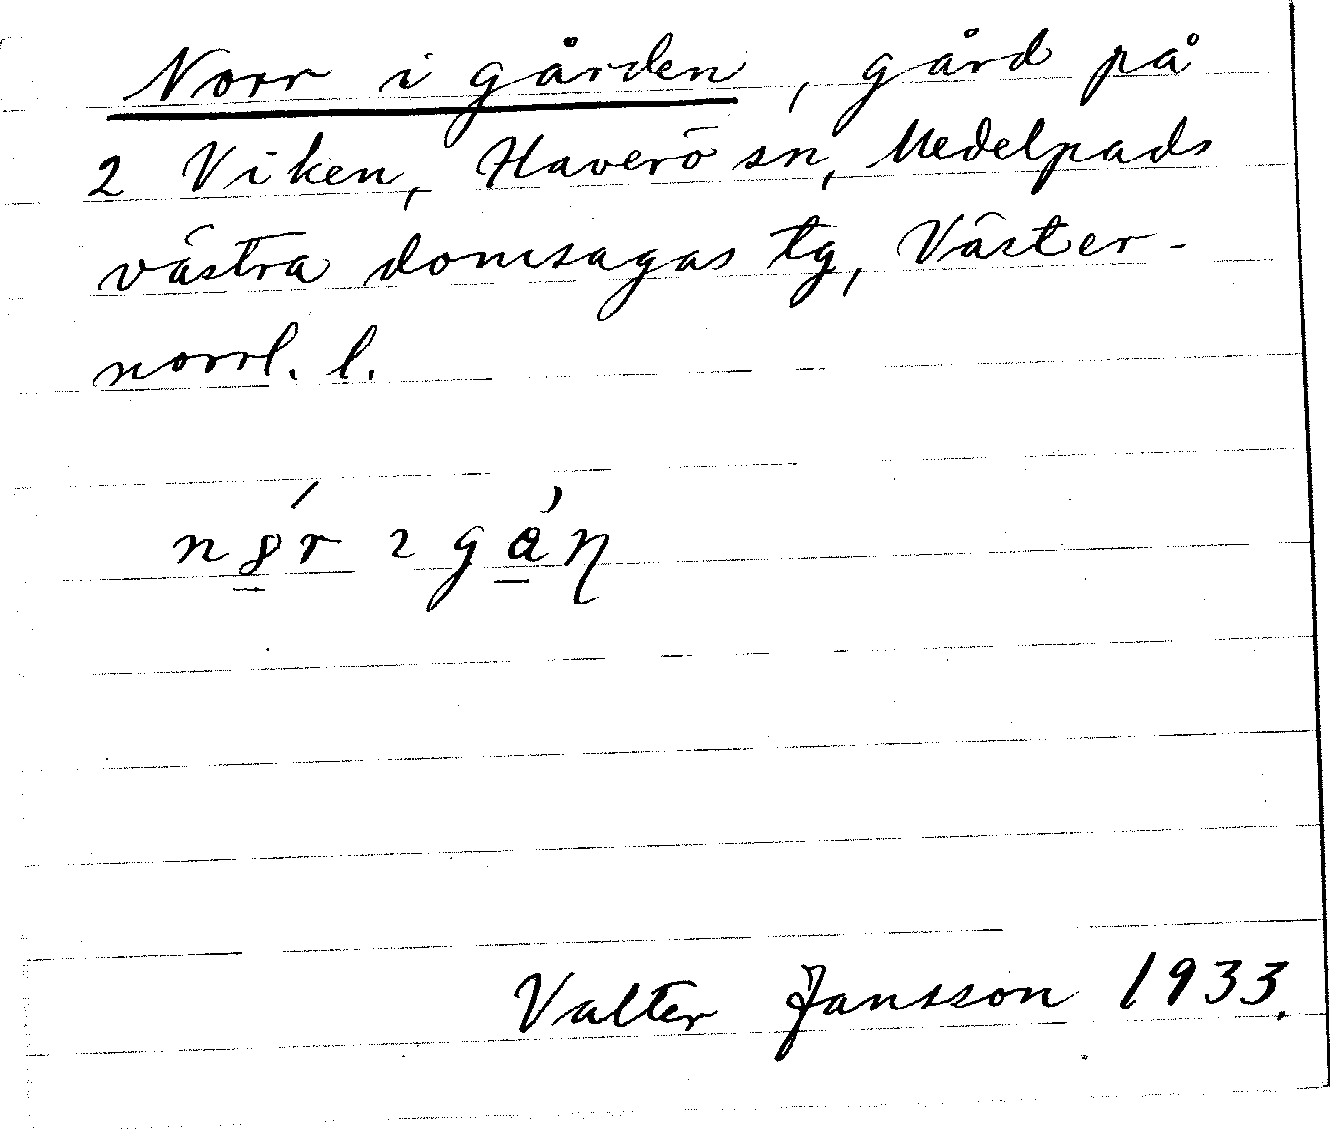 Norr i gården, gård på
2 Viken, Haverö sn, Medelpads
västra domsagas tg, Väster-
norrl. l.
Valter Jansson 1933.